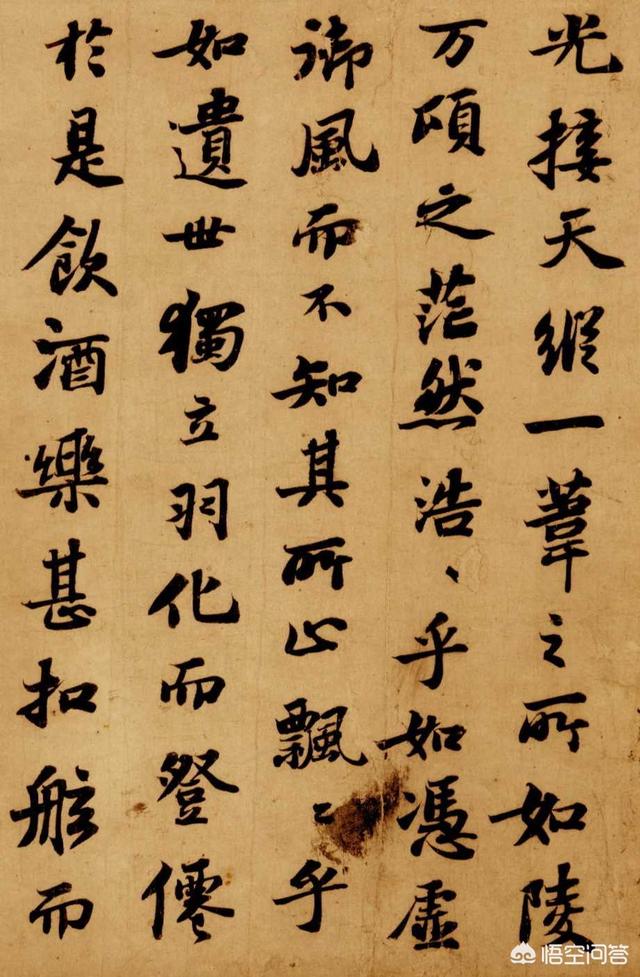 光接天縱一葦之所如陵
万頃之茫然浩〻乎如憑虛
御風而不知其所止飄〻乎
如遺世獨立羽化而登僊
於是飲酒樂甚扣舷而
悟空问答